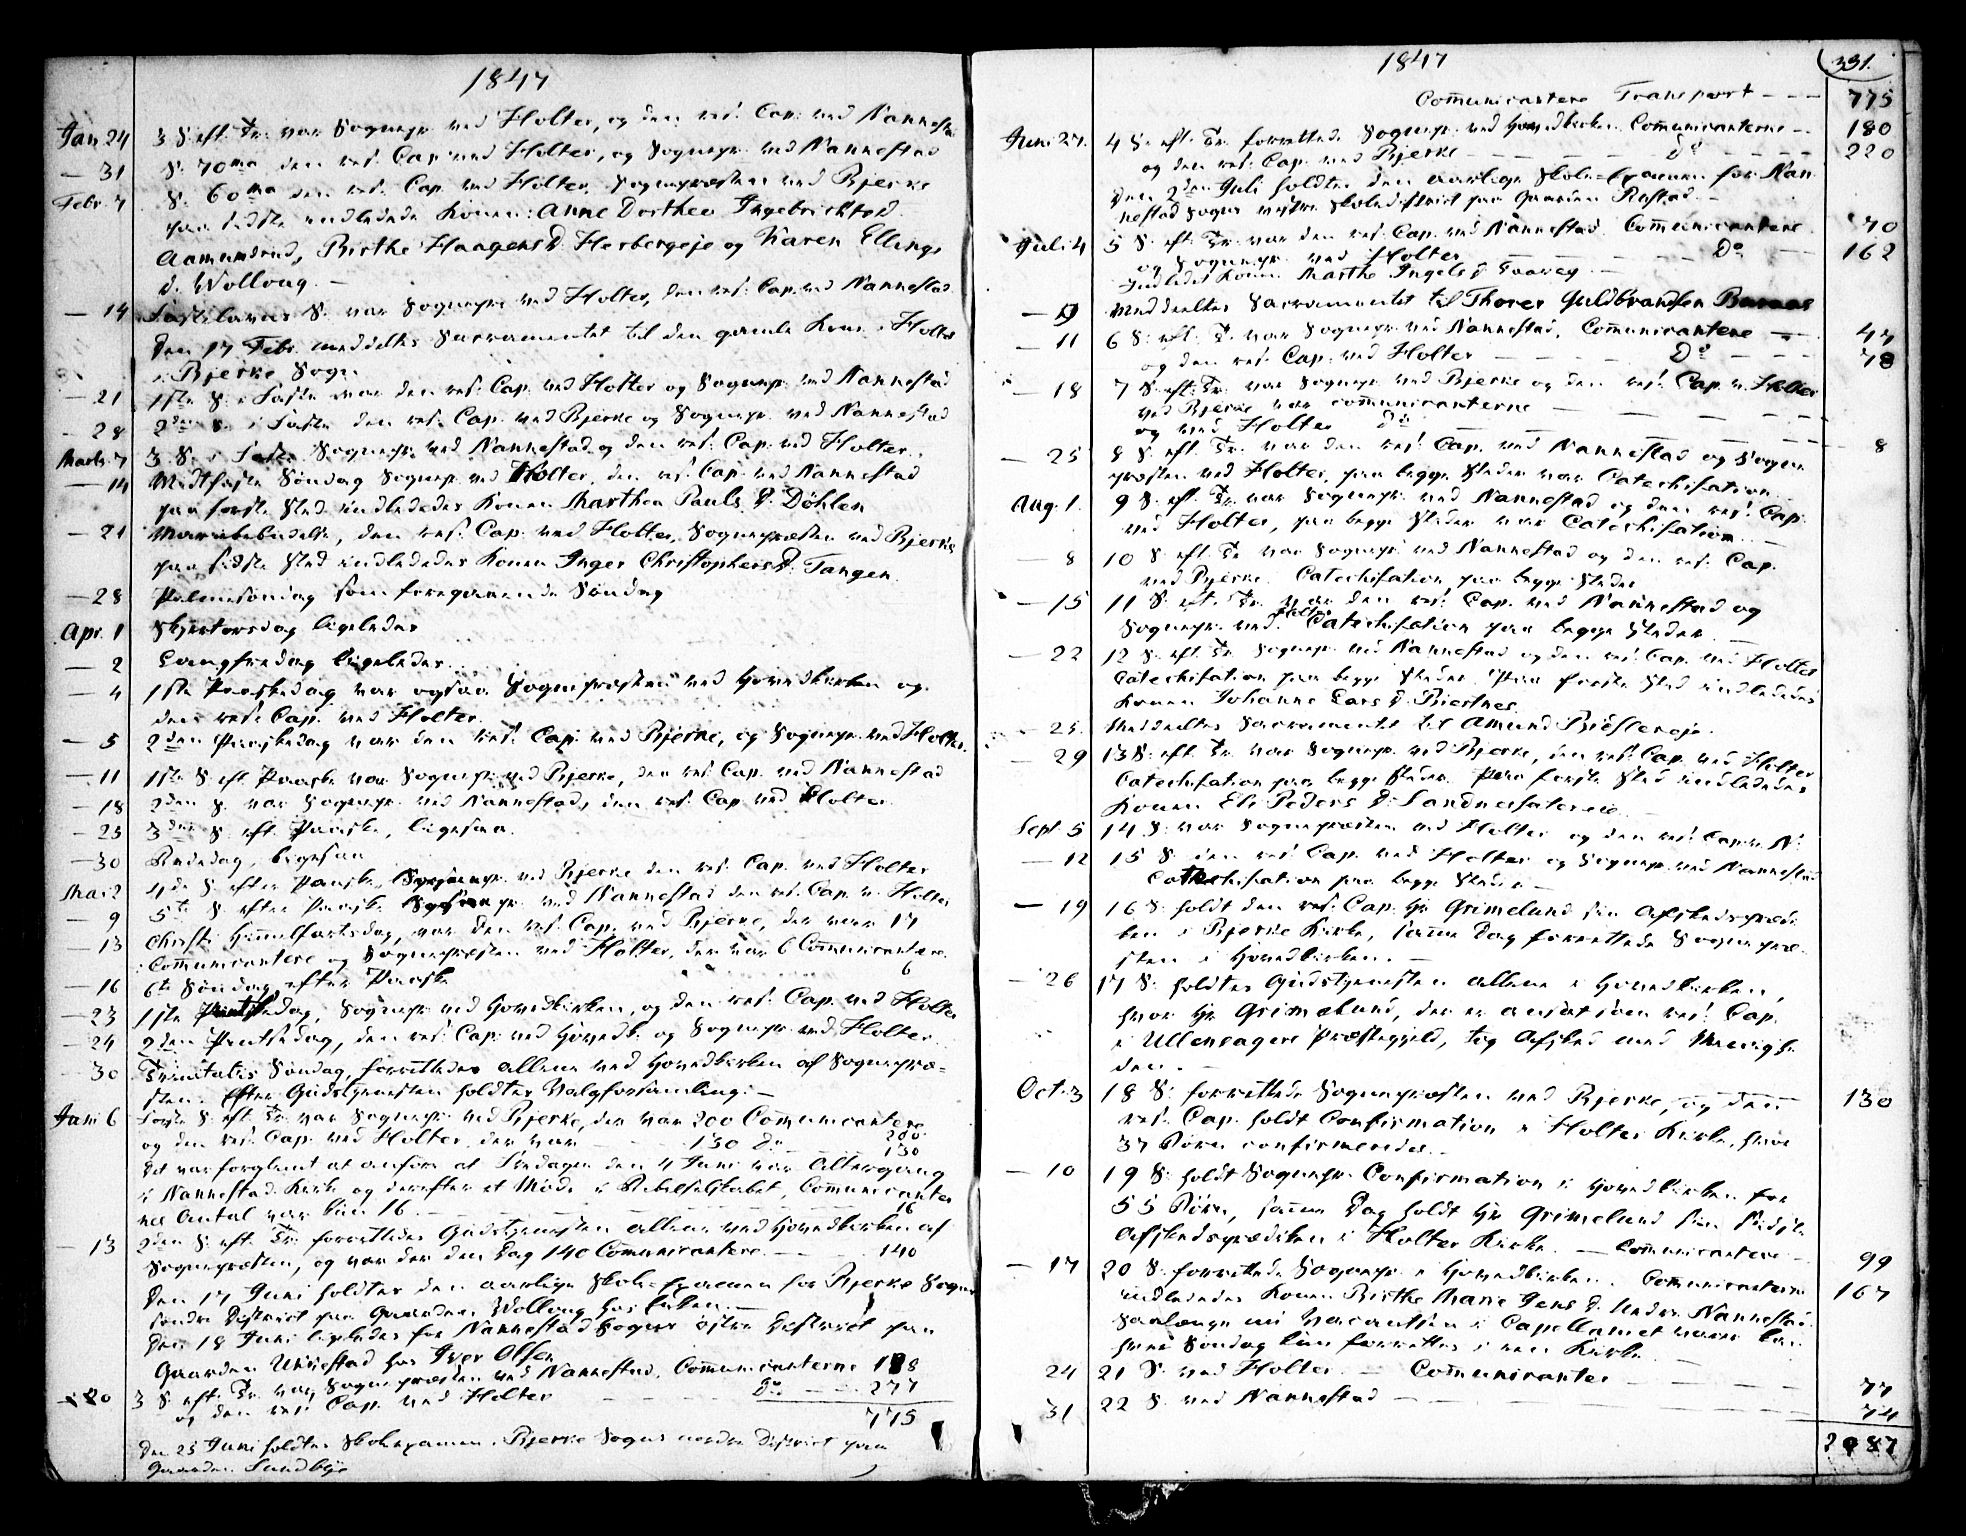 1847
Jan 24 3 S. eft. Tr. var Sognepr. ved Holter, og den res. Cap. ved Nannestad
— 31 S. 70ma den res. Cap. ved Holter, og Sognepr. ved Nannestad
Febr. 7 S. 60ma den res. Cap. ved Holter, Sognepræsten ved Bjerke
paa sidste indledede Konen: Anne Dorthea Ingebrichtsd.
Aamundrud, Birthe HaagensD. Herbergeje og Karen Ellings
d. Wollaug. —
— 14 Fastelavns S. var Sognepr. ved Holter, den res. Cap. ved Nannestad
Den 17 Febr. meddeltes Sacramentet til den gamle Kone i Holter
i Bjerke Sogn.
— 21 1ste S. i Faste var den res. Cap. ved Holter og Sognepr. ved Nannestad
— 28 2den S. i Faste den res. Cap. ved Bjerke og Sognepr. ved Nannestad
Marts 7 3 S. i Faste Sognepr. ved Nannestad og den res. Cap. ved Holter.
— 14 Midtfaste Søndag Sognepr. ved Holter, den res. Cap. ved Nannestad
paa første Sted indledes Konen Marthea Pauls D. Döhlen
— 21 Mariæbebudelse, den res. Cap. ved Holter, Sognepræsten ved Bjerke
paa sidste Sted indledes Konen Inger ChristophersD. Tangen.
— 28 Palmesøndag som foregaaende Søndag
Apr. 1 Skjertorsdag ligeledes
— 2 Langfredag ligeledes.
— 4 1ste Paaskedag var ogsaa Sognepræsten ved Hovedkirken og
den res. Cap. ved Holter.
— 5 2den Paaskedag var den res. Cap. ved Bjerke, og Sognepr. ved Holter.
— 11 1ste S. eft. Paaske var Sognepr. ved Bjerke, den res. Cap. ved Nannestad
— 18 2den S. var Sognepr. ved Nannestad, den res. Cap. ved Holter
— 25 3die S. eft. Paaske, ligesaa.
— 30 Bededag, ligesaa
Mai 2 4de S. efter Paaske, Sognepr. ved Bjerke den res. Cap. ved Holter
— 9 5te S. efter Paaske Sognepr. ved Nannestad den res. Cap. v. Holter
— 13 Christi Himmelfartsdag, var den res. Cap. ved Bjerke, der var 17
Communicantere og Sognepræsten ved Holter, der var 6 Communicantere.
6
— 16 6te Søndag efter Paaske
— 23 1ste Pintsedag, Sognepr. ved Hovedkirken, og den res. Cap. ved Holter
— 24 2den Pintsedag, den res. Cap. ved Hovedk. og Sognepr. ved Holter
30 Trinitatis Søndag, forrettedes allene ved Hovedkirken af Sognepræ-
sten. Efter Gudstjenesten holdtes Valgforsamling. —
Juni 6 Første S. eft. Tr. var Sognepr. ved Bjerke, der var 200 Communicantere 200
og den res. Cap. ved Holter, der var — 130 Do — 130
Det var forglemt at anføre at Fredagen den 4 Juni var Altergang
i Nannestad Kirke og derefter et Møde i Bibelselskabet, Communicanter
nes Antal var kun 16. — 16
— 13 2den S. eft. Tr. forrettedes Gudstjenesten allene ved Hovedkirken af
Sognepræsten, og var der den Dag 140 Communicantere. — 140
Den 17 Juni holdtes den aarlige Skole-Examen for Bjerke Sogns
søndre District paa Gaarden Wollaug hos
Den 18 Juni ligeledes for Nannestad Sogns østre District paa
Gaarden Unnestad hos Iver Olsen
20 3 S. eft. Tr. var Sognepræsten ved Nannestad, Communicanterne 1 8
og den res. Cap. ved Holter Do — 277
775
Den 25 Juni holdtes Skoleexamen i Bjerke Sogns nordre District paa
Gaarden Sundbye
1847
331.
Communicantere Transport — 775
Juni 27. 4 S. eft. Tr. forrettede Sognepr. ved Hovedkirken. Communicanterne — 180
og den res. Cap. ved Bjerke — Do — 220
Den 2den Juli holdtes den aarlige Skole-Examen for Nan-
nestad Sogns vestre Skoledistrict paa Gaarden Rustad. —
Juli 4 5 S. eft. Tr. var den res. Cap. ved Nannestad. Communicantere 70
og Sognepr. ved Holter — Do — 162
Indledet Konen Marthe Ingels D.
— 9 Meddeeltes Sacramentet til Thorer Guldbrandsen
— 11 6 S. eft. T. var Sognepr. ved Nannestad, Communicantere — 47
og den res. Cap. ved Holter — Do — 78
— 18 7 S. eft. Tr. var Sognepr. ved Bjerke og den res. Cap. v. Holter
ved Bjerke var communicanterne —
og ved Holter Do —
— 25 8 S. eft. Tr. var den res. Cap. ved Nannestad og Sogne 8
præsten ved Holter, paa begge Steder var Catechisation
Aug. 1. 9 S. eft. Tr. var Sognepr. ved Nannestad og den res. Cap.
ved Holter, paa begge Steder var Catechisation —
— 8 10 S. eft. Tr. var Sognepr. ved Nannestad og den res. Cap.
ved Bjerke. Catechisation paa begge Steder
— 15 11 S. eft. Tr. var den res. Cap. ved Nannestad og
Sognepr. ved Holter Catechisation paa begge Steder. —
— 22 12 S. eft. Tr. Sognepr. ved Nannestad og den res. Cap. ved Holter
Catechisation paa begge Steder. Paa første Sted indledes
Konen Johanne Lars D.
— 25. Meddeeltes Sacramentet til Amund
— 29 13 S. eft. Tr. var Sognepr. ved Bjerke, den res. Cap. ved Holter
Catechisation paa begge Steder. Paa første Sted indledes
Konen Eli Peders D.
Sept. 5 14 S. var Sognepræsten ved Holter og den res. Cap. v. N.
— 12 15 S. den res. Cap. ved Holter og Sognepr. ved Nannestad
Catechisation paa begge Steder —
— 19 16 S. holdt den res. Cap. Hr Grimelund sin Afskedspræ-
ken i Bjerke Kirke, samme Dag forrettede Sognepræ-
sten i Hovedkirken. —
— 26 17 S. holdtes Gudstjenesten allene i Hovedkirken,
hvor Hr Grimelund, der er ansat som res. Cap.
i Ullensagers Præstegjeld, tog Afsked med Menighe
den. —
Oct. 3 18 S. forrettede Sognepræsten ved Bjerke, og den 130
res. Cap. holdt Confirmation i Holter Kirke, hvor
37 Børn confirmeredes.
— 10 19 S. holdt Sognepr. Confirmation i Hovedkirken for
55 Børn, samme Dag holdt Hr Grimelund sin sidste
Afskedsprædiken i Holter Kirke. — Communicantere — 99
— 17 20 S. forrettede Sognepr. i Hovedkirken. Communicanterne 167
indledes Konen Birthe Marie Jens D. Nannestad.
Saalænge nu Vacantsen i Capellaniet varer kan
hver Søndag kun forrettes i een Kirke
24 21 S. ved Holter. — Communicanter — 77
31 22 S. ved Nannestad — 74
2087